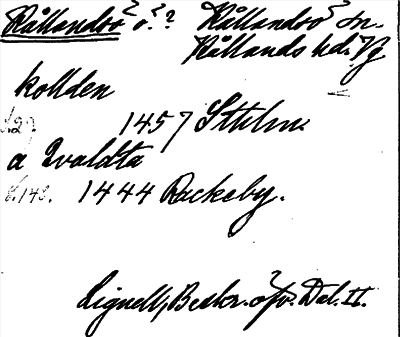 Kållandsö ö.? Kållandsö sn.
Kållands hd. Vg
kollden
1457 Sthlm.
a Qvaldta
s. 148. 1444 Rackeby.
Lignell, Beskr. öfv. Dal. II.